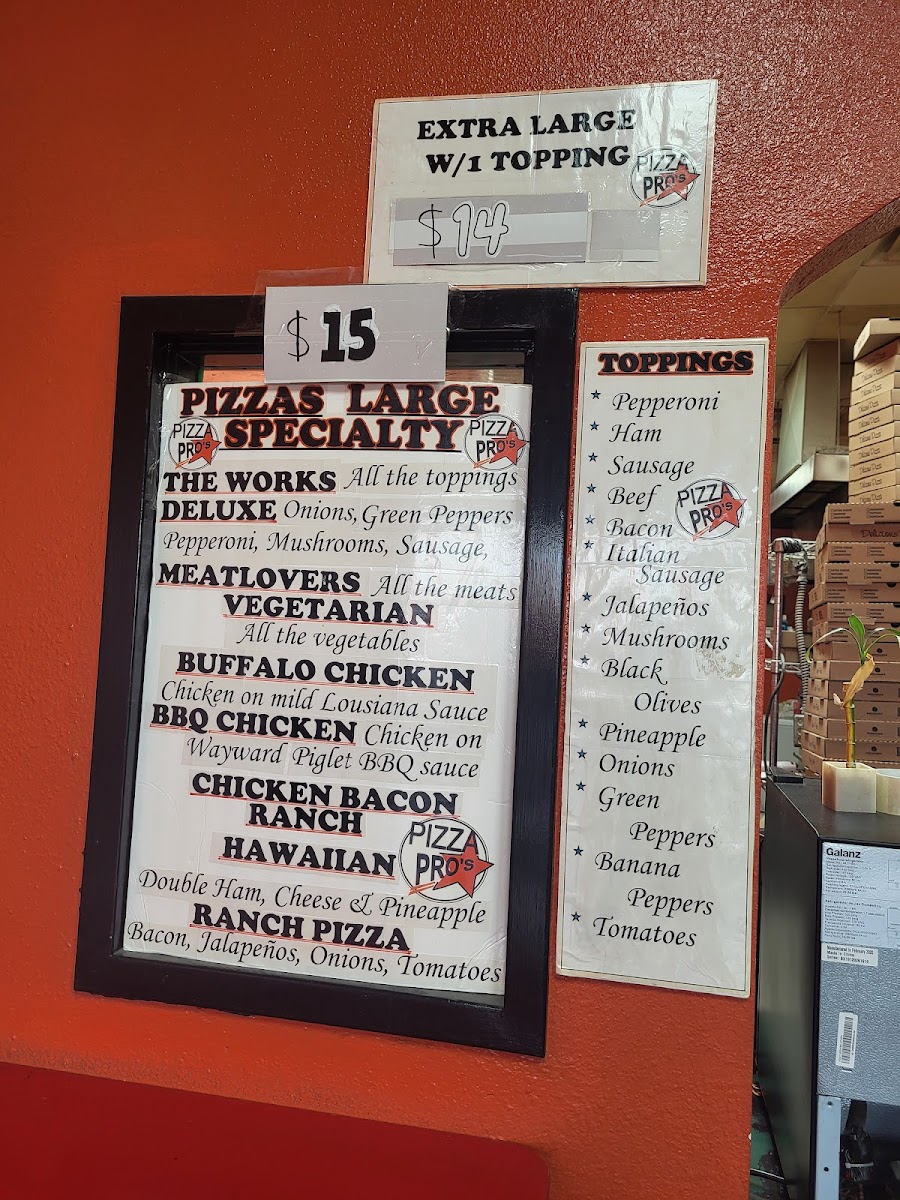 EXTRA LARGE
W/1 TOPPING
PIZZA
PRO's
$14
$15
PIZZAS LARGE
SPECIALTY
PIZZA
PRO's
PIZZA
PRO's
THE WORKS All the toppings
DELUXE Onions, Green Peppers
Pepperoni, Mushrooms, Sausage,
MEATLOVERS All the meats
VEGETARIAN
All the vegetables
BUFFALO CHICKEN
Chicken on mild Lousiana Sauce
BBQ CHICKEN Chicken on
Wayward Piglet BBQ sauce
CHICKEN BACON
RANCH
HAWAIIAN
PIZZA
PRO's
Double Ham, Cheese & Pineapple
RANCH PIZZA
Bacon, Jalapeños, Onions, Tomatoes
TOPPINGS
Pepperoni
Ham
Sausage
Beef
Bacon
PIZZA
PRO's
Italian
Sausage
Jalapeños
Mushrooms
Black
Olives
Pineapple
Onions
Green
Peppers
Banana
Peppers
Tomatoes
Galanz